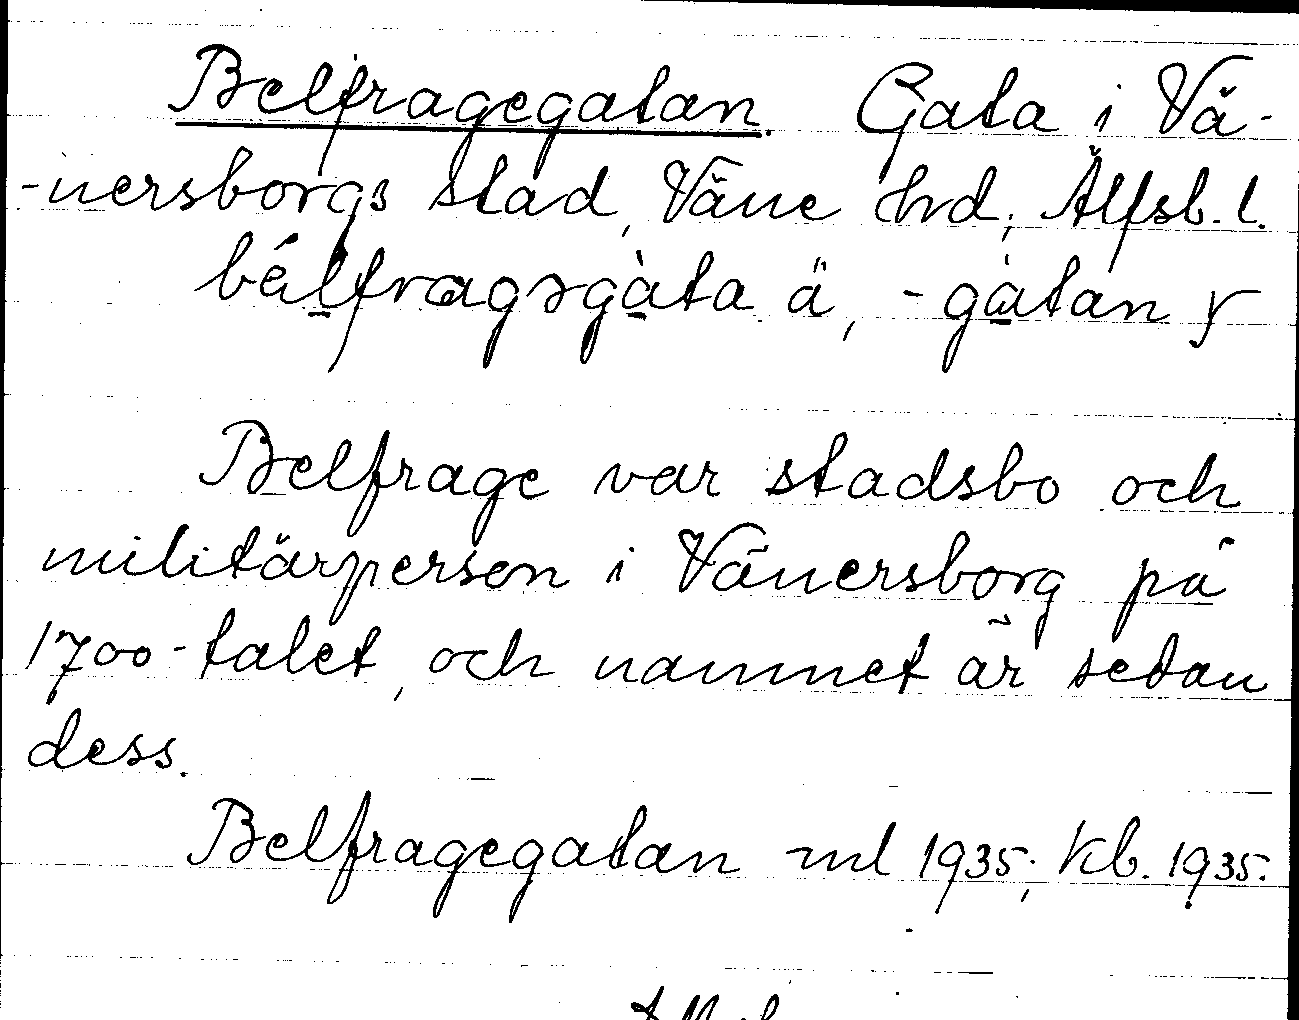 Belfragegatan. Gata i Vä-
-nersborgs stad, Väne hrd, Älfsb. l.
bélfragɘgàta ä, -gàtan y
Belfrage var stadsbo och
militärperson i Vänersborg på
1700-talet, och namnet är sedan
dess.
Belfragegatan ml 1935; Kb. 1935.